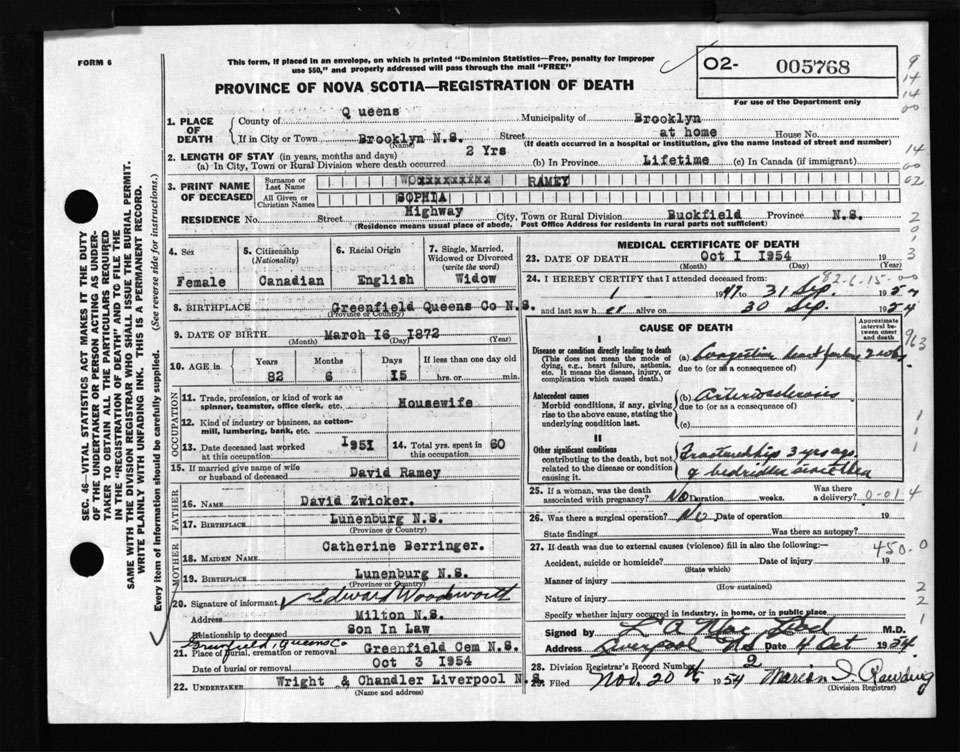 FORM 6
This form, if placed in an envelope, on which is printed "Dominion Statistics—Free, penalty for improper
use $50," and properly addressed will pass through the mail "FREE"
O2- 005768
For use of the Department only
PROVINCE OF NOVA SCOTIA—REGISTRATION OF DEATH
1. PLACE OF DEATH
County of Queens Municipality of Brooklyn
If in City or Town Brooklyn N.S. Street at home House No.
(Name) (If death occurred in a hospital or institution, give the name instead of street and number)
2. LENGTH OF STAY (in years, months and days)
(a) In City, Town or Rural Division where death occurred 2 Yrs (b) In Province Lifetime (c) In Canada (if immigrant)
3. PRINT NAME OF DECEASED
Surname or Last Name RAMEY
All Given or Christian Names SOPHIA
RESIDENCE No. Street Highway City, Town or Rural Division Buckfield Province N.S.
(Residence means usual place of abode. Post Office Address for residents in rural parts not sufficient)
4. Sex Female
5. Citizenship (Nationality) Canadian
6. Racial Origin English
7. Single, Married, Widowed or Divorced (write the word) Widow
8. BIRTHPLACE Greenfield Queens Co N.S.
(Province or Country)
9. DATE OF BIRTH March 16 1872
(Month) (Day) (Year)
10. AGE in Years 82 Months 6 Days 15 If less than one day old hrs. or min.
OCCUPATION
11. Trade, profession, or kind of work as
spinner, teamster, office clerk, etc. Housewife
12. Kind of industry or business, as cotton-
mill, lumbering, bank, etc.
13. Date deceased last worked at this occupation 1951
14. Total yrs. spent in this occupation 60
15. If married give name of wife
or husband of deceased David Ramey
FATHER
16. NAME David Zwicker.
17. BIRTHPLACE Lunenburg N.S.
(Province or Country)
MOTHER
18. MAIDEN NAME Catherine Berringer.
19. BIRTHPLACE Lunenburg N.S.
(Province or Country)
20. Signature of informant Edward Woodworth
Address Milton N.S.
Relationship to deceased Son In Law
Greenfield, Queens Co
21. Place of burial, cremation or removal Greenfield Cem N.S.
Date of burial or removal Oct 3 1954
22. UNDERTAKER Wright & Chandler Liverpool N.S.
(Name and address)
MEDICAL CERTIFICATE OF DEATH
23. DATE OF DEATH Oct I 1954 19
(Month) (Day)
24. I HEREBY CERTIFY that I attended deceased from:
82-6-15-00
1 1947 to 31 Sep. 1954
and last saw her alive on 30 Sep. 1954
CAUSE OF DEATH
Approximate interval between onset and death
I
Disease or condition directly leading to death
(This does not mean the mode of
dying, e.g., heart failure, asthenia,
etc. It means the disease, injury, or
complication which caused death.)
(a) Congestive heart failure 2 wks
due to (or as a consequence of)
Antecedent causes
Morbid conditions, if any, giving
rise to the above cause, stating the
underlying condition last.
(b) Arteriosclerosis
due to (or as a consequence of)
(c)
II
Other significant conditions
contributing to the death, but not
related to the disease or condition
causing it.
Fractured hip 3 yrs ago.
& bedridden since then
25. If a woman, was the death
associated with pregnancy? No Duration weeks. Was there a delivery? 0-01 4
26. Was there a surgical operation? No Date of operation 19
State findings Was there an autopsy?
27. If death was due to external causes (violence) fill in also the following:— 450.0
Accident, suicide or homicide? Date of injury 19
(State which)
Manner of injury
(How sustained)
Nature of injury
Specify whether injury occurred in industry, in home, or in public place
Signed by M.D.
Address Liverpool N.S Date 4 Oct 1954.
28. Division Registrar's Record Number 2
29. Filed Nov. 20th 1954 Marion I.
(Division Registrar)
SEC. 46—VITAL STATISTICS ACT MAKES IT THE DUTY
OF THE UNDERTAKER OR PERSON ACTING AS UNDER-
TAKER TO OBTAIN ALL THE PARTICULARS REQUIRED
IN THE "REGISTRATION OF DEATH" AND TO FILE THE
SAME WITH THE DIVISION REGISTRAR WHO SHALL ISSUE THE BURIAL PERMIT.
WRITE PLAINLY WITH UNFADING INK. THIS IS A PERMANENT RECORD.
Every item of information should be carefully supplied. (See reverse side for instructions.)